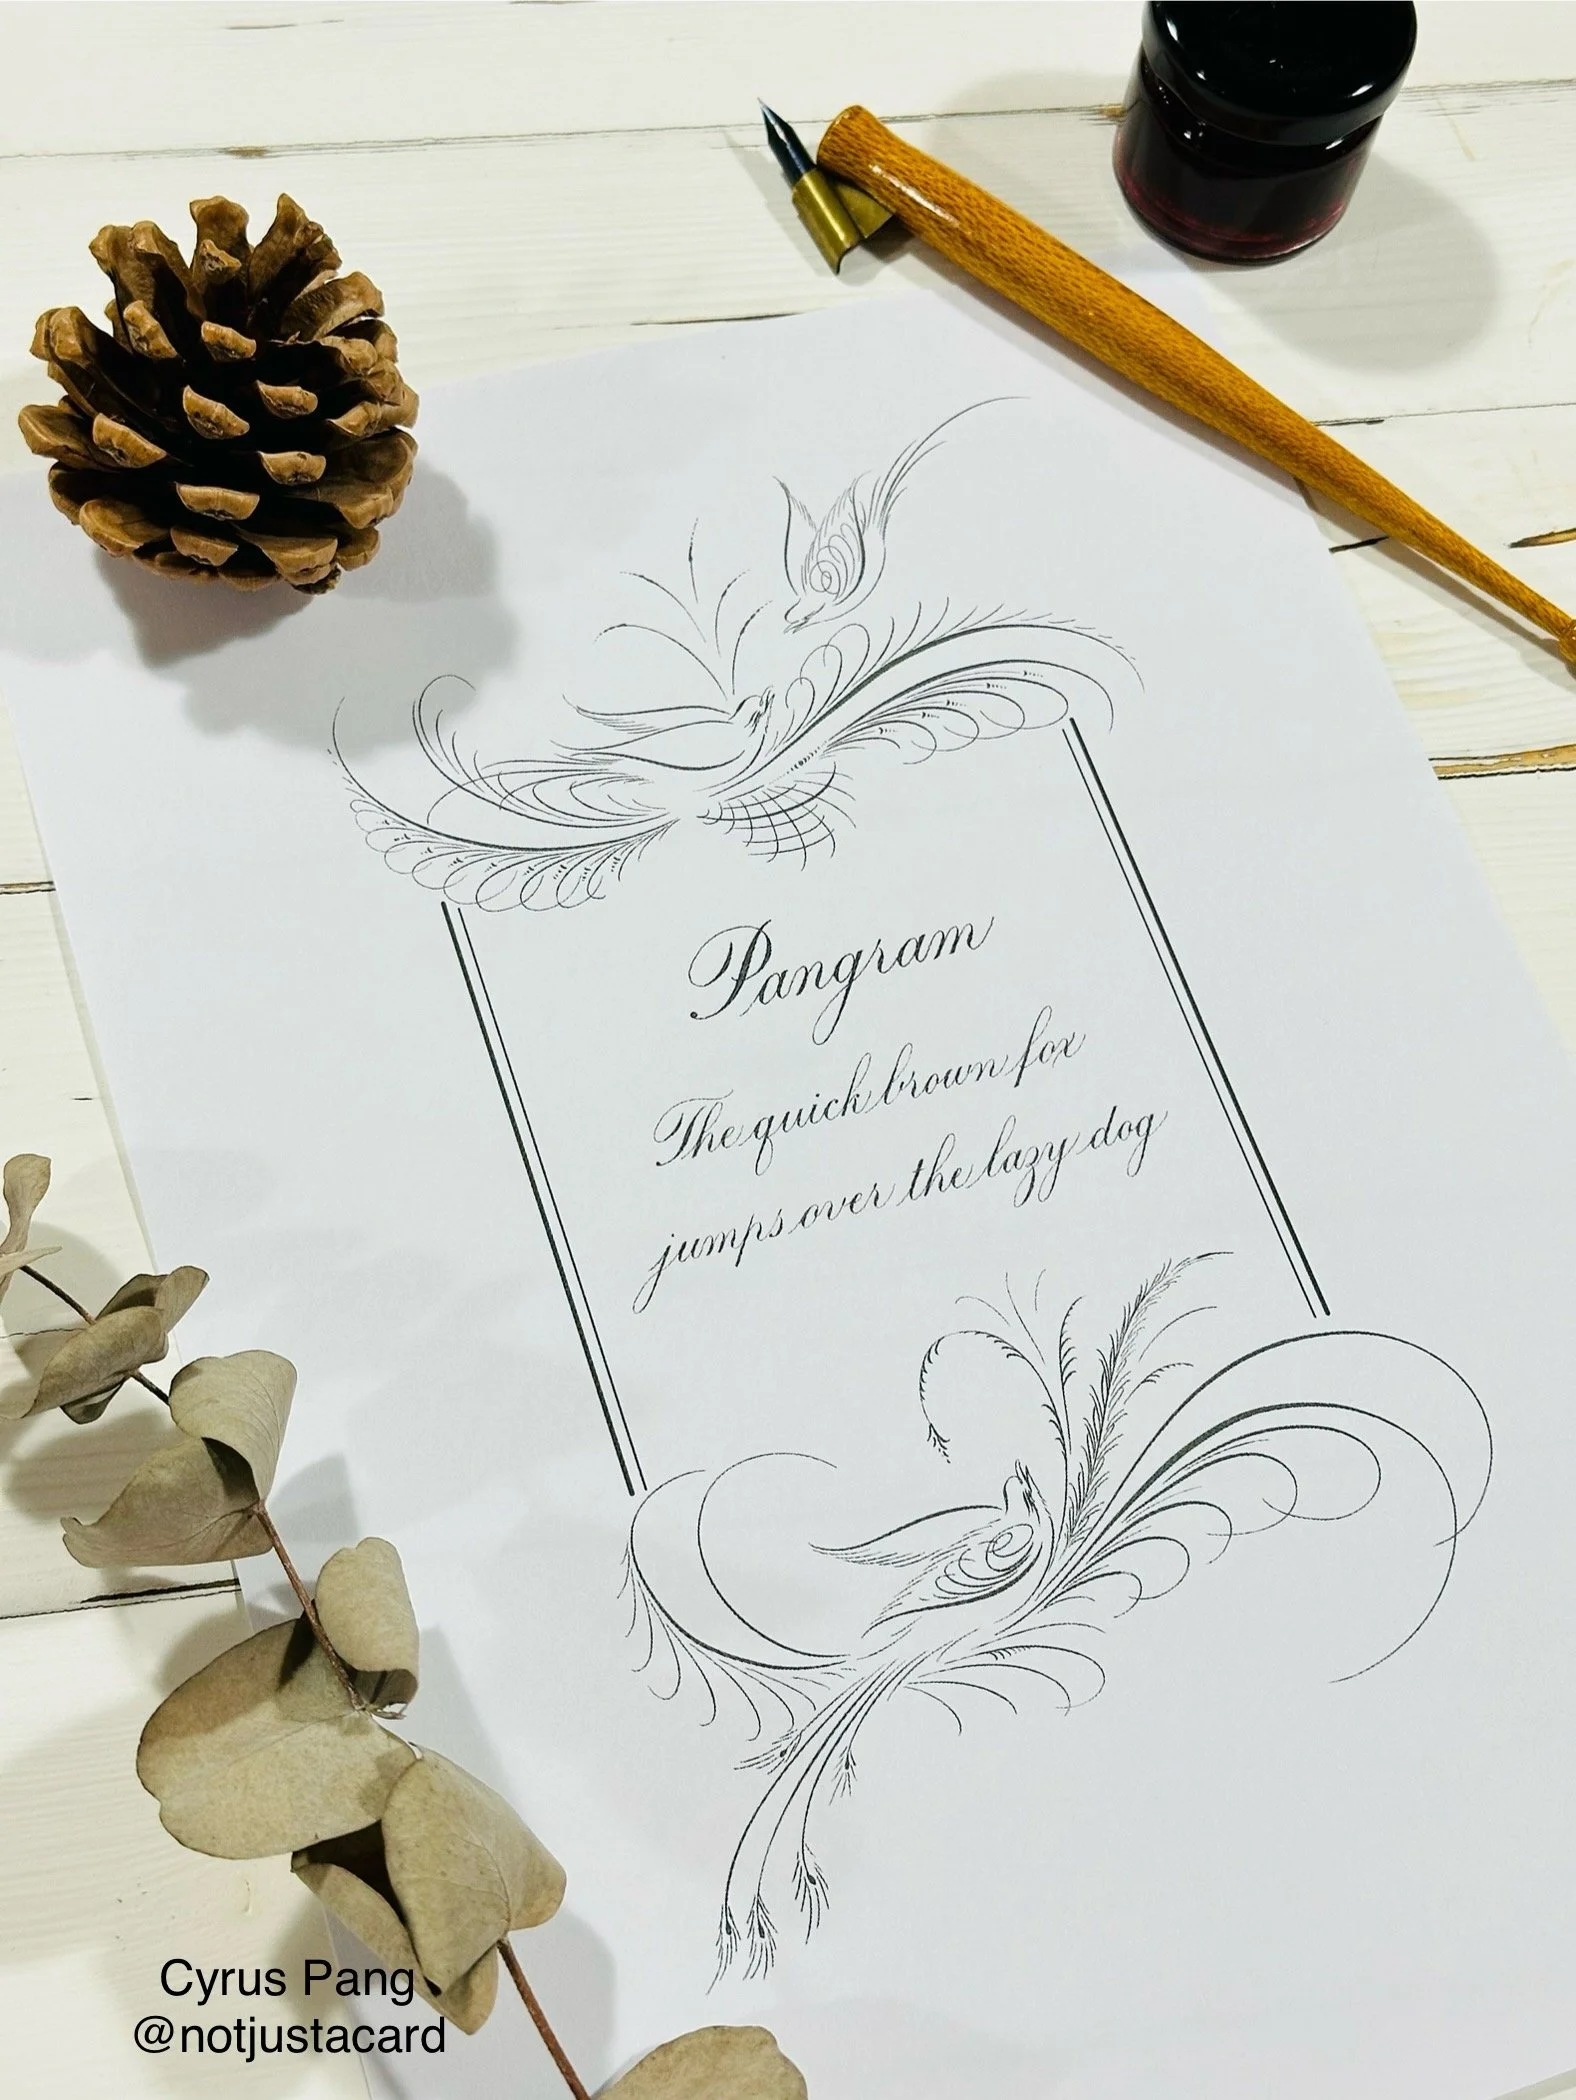 Pangram
The quick brown fox
jumps over the lazy dog
Cyrus Pang
@notjustacard